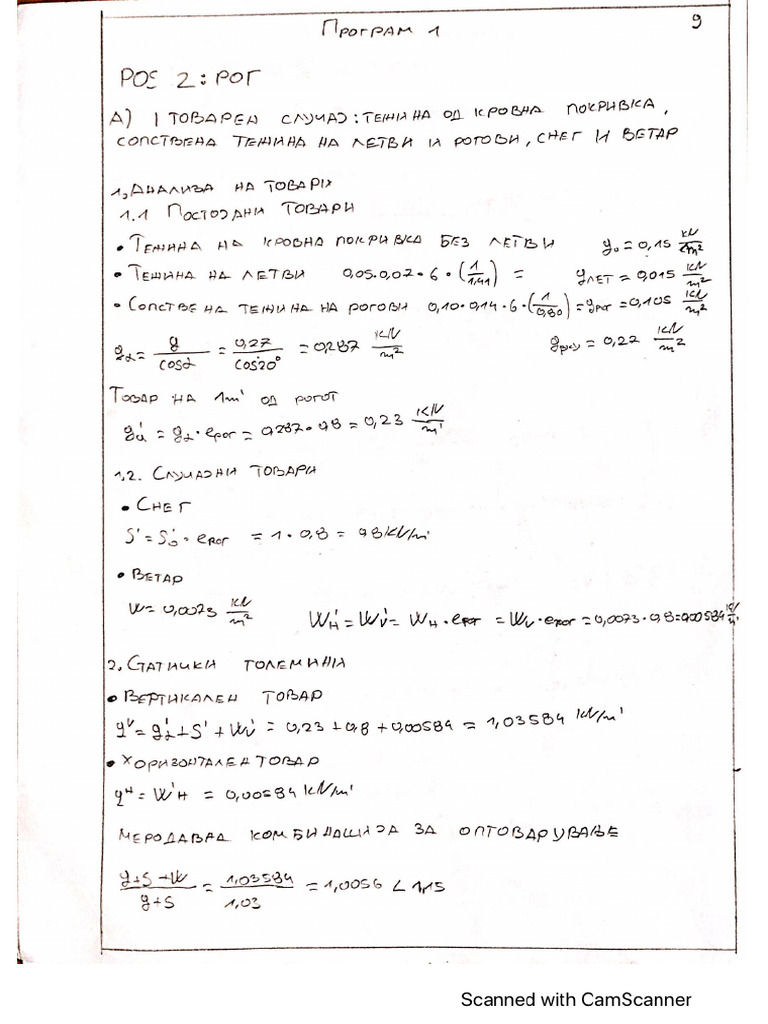 Програм 1
9
POS 2: РОГ
А) I ТОВАРЕН СЛУЧАЈ: ТЕЖИНА ОД КРОВНА ПОКРИВКА,
СОПСТВЕНА ТЕЖИНА НА ЛЕТВИ И РОГОВИ, СНЕГ И ВЕТАР
1. АНАЛИЗА НА ТОВАРИ
1.1 ПОСТОЈАНИ ТОВАРИ
• ТЕЖИНА НА КРОВНА ПОКРИВКА БЕЗ ЛЕТВИ g₀ = 0,15 kN/m²
• ТЕЖИНА НА ЛЕТВИ 0,05·0,07·6·(1/1,41) = gЛЕТ = 0,015 kN/m²
• СОПСТВЕНА ТЕЖИНА НА РОГОВИ 0,10·0,14·6·(1/0,80) = gРОГ = 0,105 kN/m²
gα = g/cosα = 0,27/cos20° = 0,287 kN/m² = 0,27 kN/m²
ТОВАР НА 1m' ОД РОГОТ
gα' = gα · eРОГ = 0,287·0,8 = 0,23 kN/m'
1.2. СЛУЧАЈНИ ТОВАРИ
• СНЕГ
S' = S₀' · eРОГ = 1·0,8 = 0,8 kN/m'
• ВЕТАР
W = 0,0073 kN/m² WH' = WV' = WH · eРОГ = WV · eРОГ = 0,0073·0,8 = 0,00584 kN/m'
2. СТАТИЧКИ ГОЛЕМИНИ
• ВЕРТИКАЛЕН ТОВАР
qV = gα' + S' + WV' = 0,23 + 0,8 + 0,00584 = 1,03584 kN/m'
• ХОРИЗОНТАЛЕН ТОВАР
qH = W'H = 0,00584 kN/m'
МЕРОДАВНА КОМБИНАЦИЈА ЗА ОПТОВАРУВАЊЕ
g+S+W/g+S = 1,03584/1,03 = 1,0056 < 1,15
Scanned with CamScanner